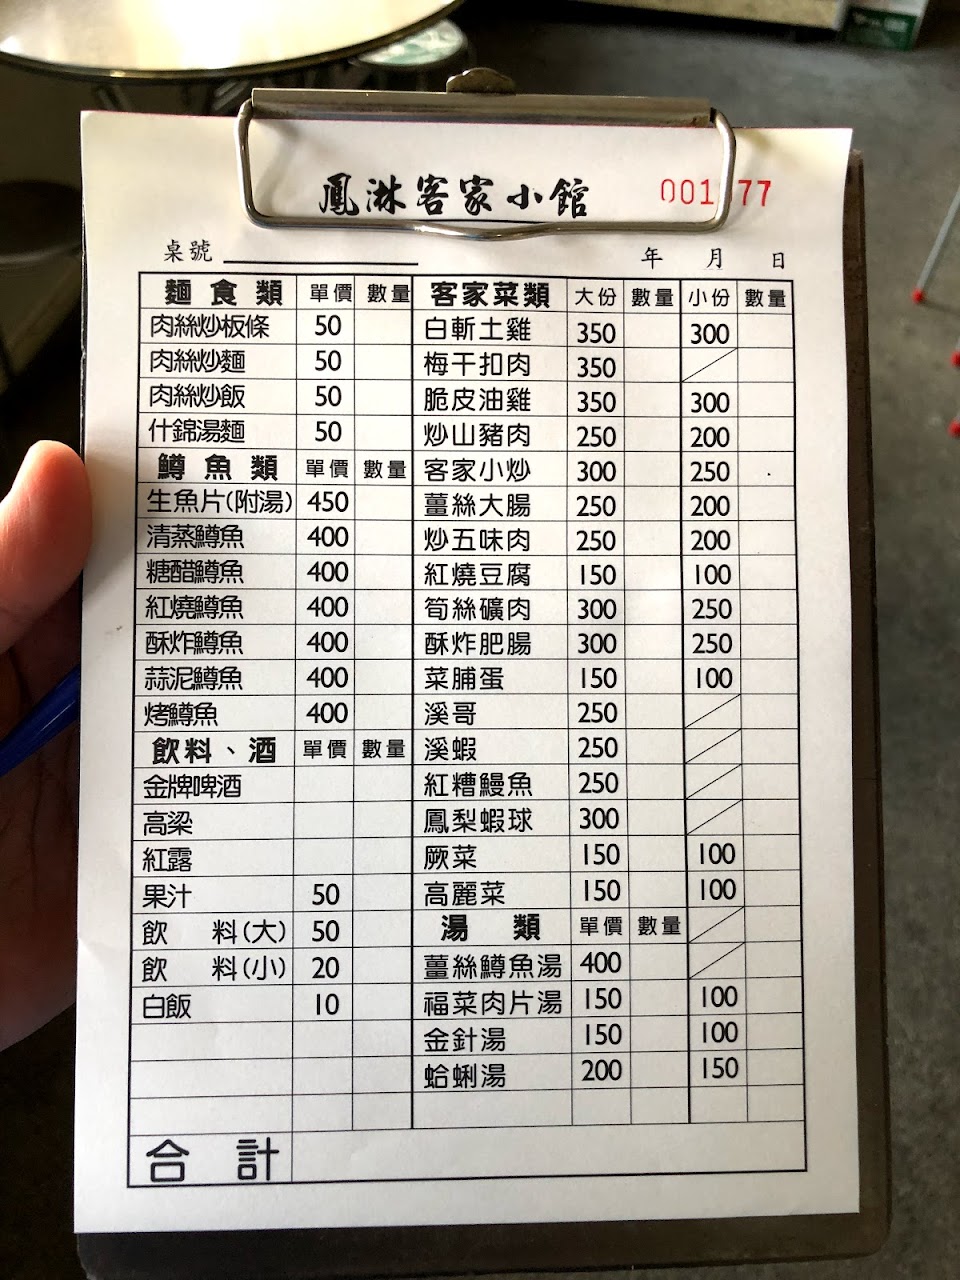 鳳淋客家小館 001 77
桌號 年 月 日
麵食類 單價 數量 客家菜類 大份 數量 小份 數量
肉絲炒板條 50 白斬土雞 350 300
肉絲炒麵 50 梅干扣肉 350
肉絲炒飯 50 脆皮油雞 350 300
什錦湯麵 50 炒山豬肉 250 200
鱒魚類 單價 數量 客家小炒 300 250
生魚片(附湯) 450 薑絲大腸 250 200
清蒸鱒魚 400 炒五味肉 250 200
糖醋鱒魚 400 紅燒豆腐 150 100
紅燒鱒魚 400 筍絲礦肉 300 250
酥炸鱒魚 400 酥炸肥腸 300 250
蒜泥鱒魚 400 菜脯蛋 150 100
烤鱒魚 400 溪哥 250
飲料、酒 單價 數量 溪蝦 250
金牌啤酒 紅糟鰻魚 250
高梁 鳳梨蝦球 300
紅露 厥菜 150 100
果汁 50 高麗菜 150 100
飲 料(大) 50 湯類 單價 數量
飲 料(小) 20 薑絲鱒魚湯 400
白飯 10 福菜肉片湯 150 100
金針湯 150 100
蛤蜊湯 200 150
合計